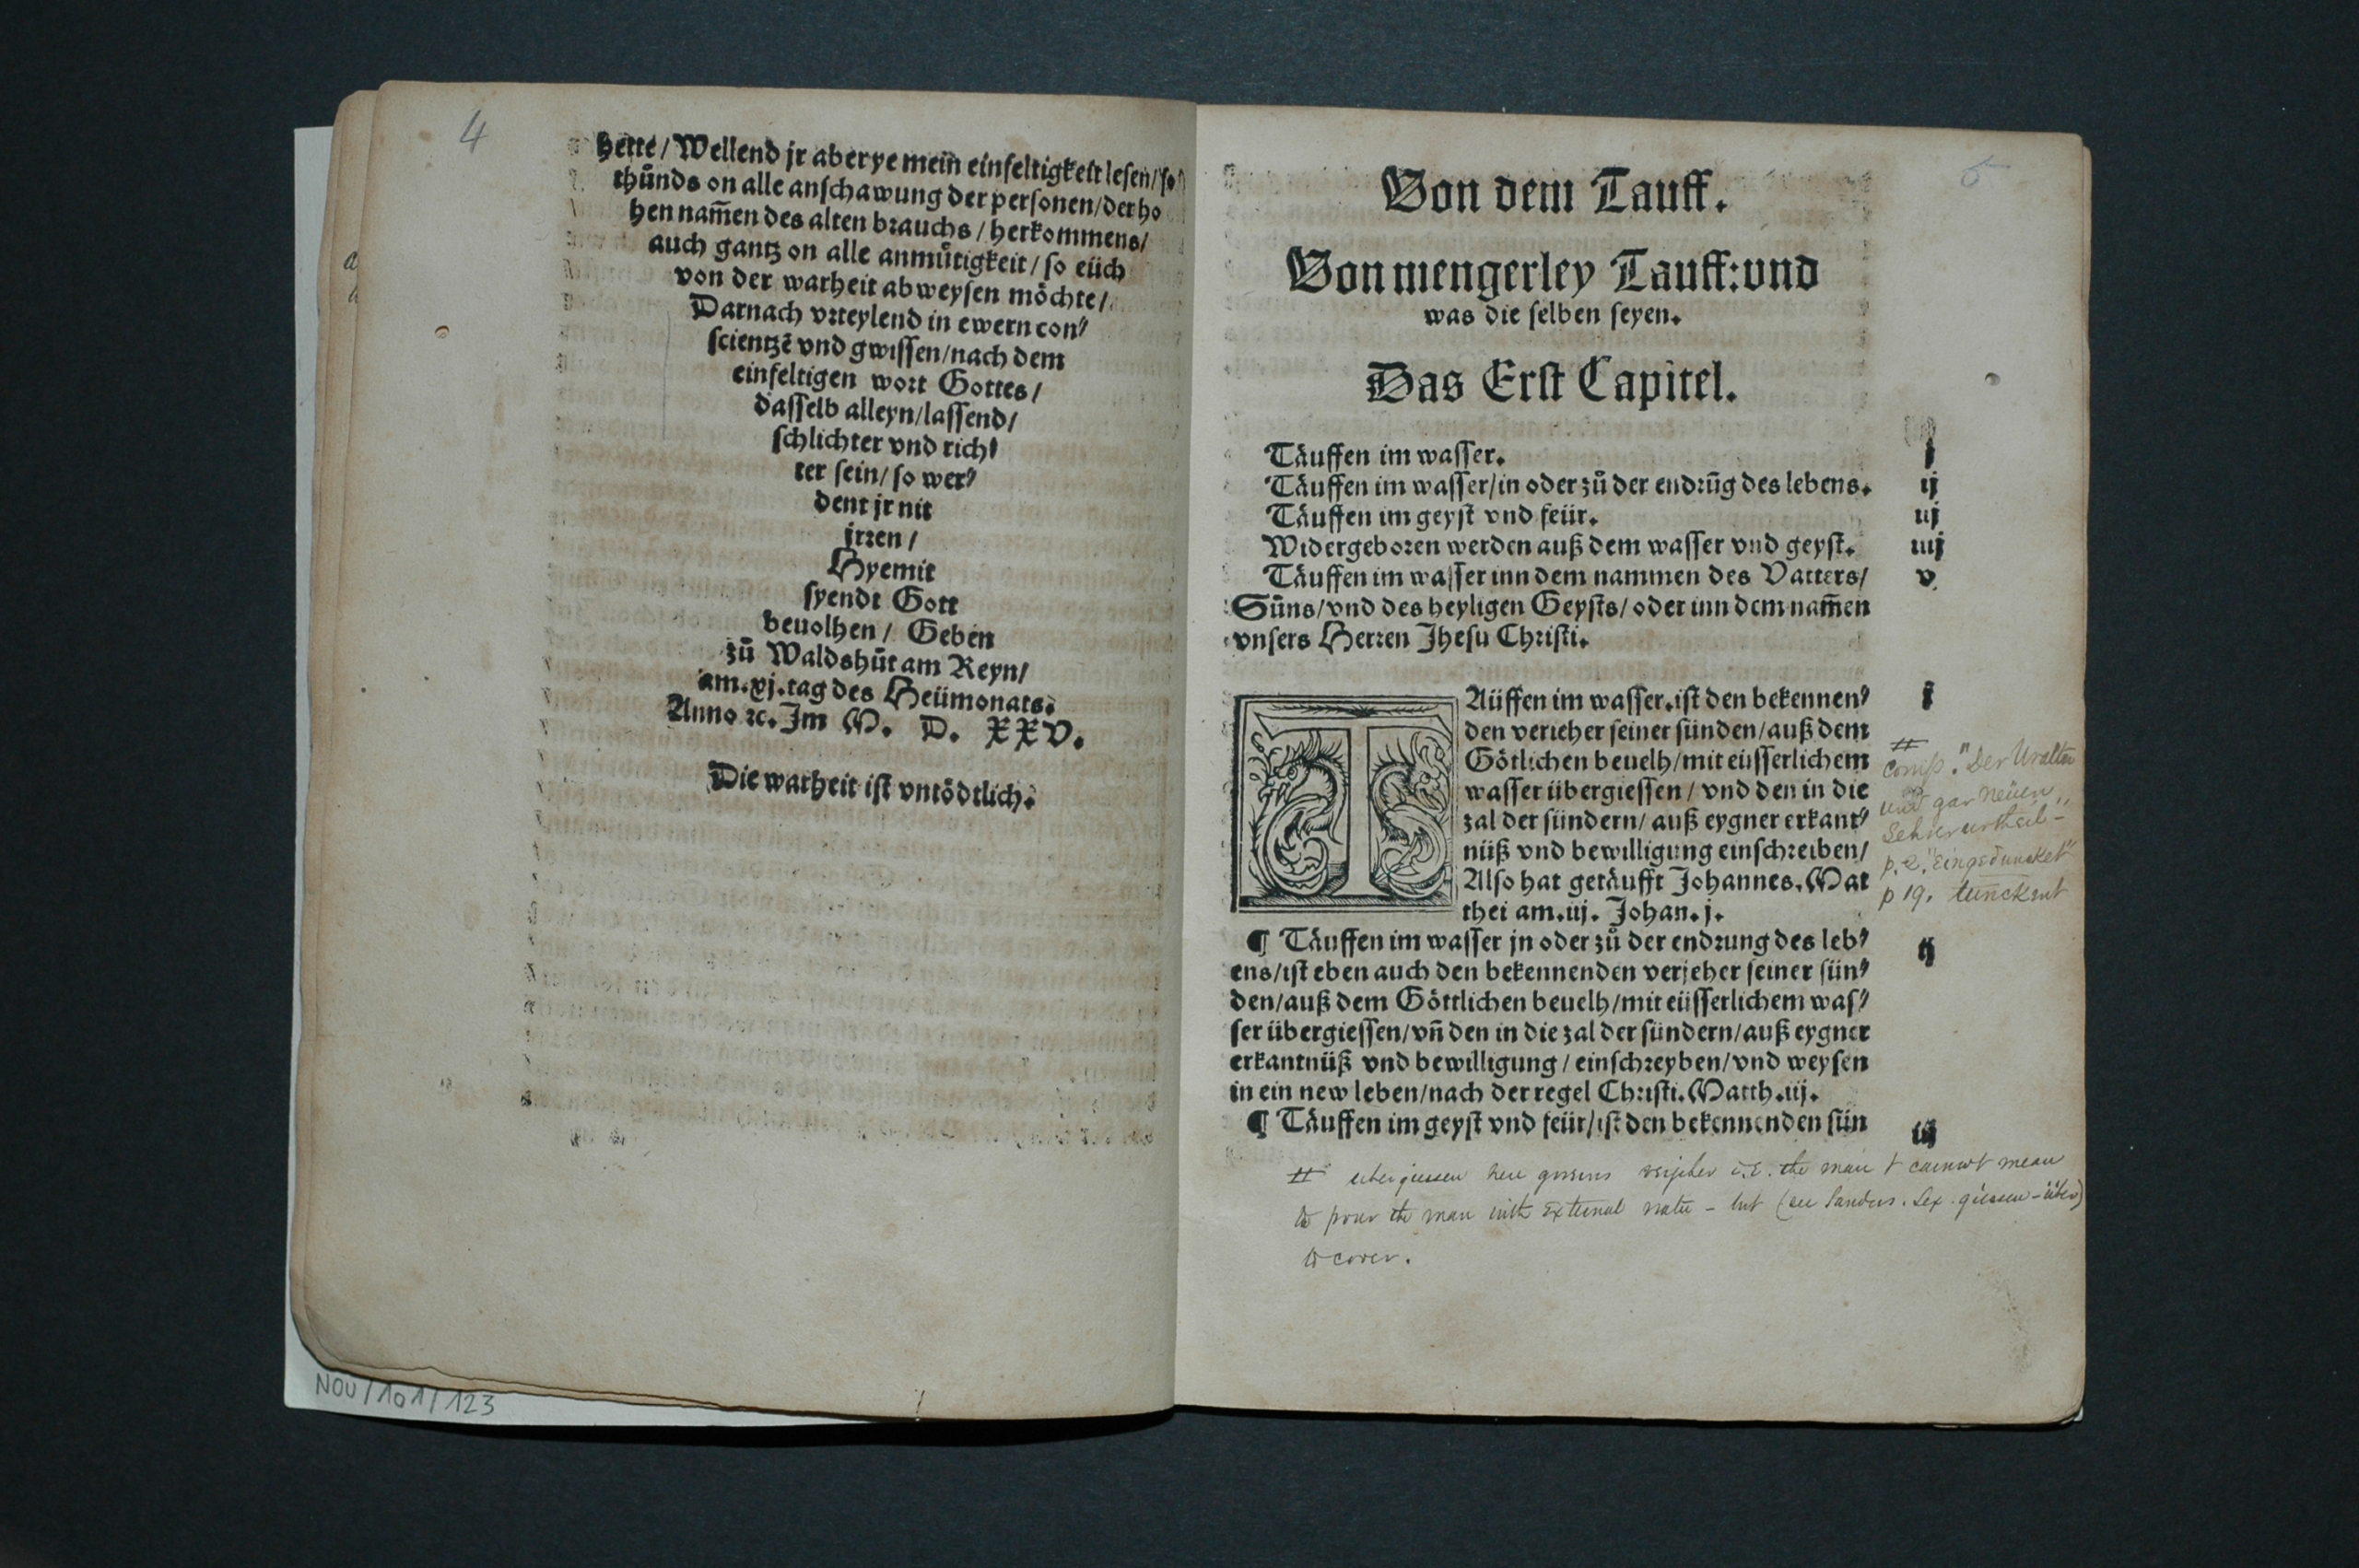 4
hette/ Wellend jr aber ye mein̄ einfeltigkeit lesen/ so
thůnds on alle anschawung der personen/ der ho
hen nam̄en des alten brauchs/ herkommens/
auch gantz on alle anmůtigkeit/ so eüch
von der warheit abweysen möchte/
Darnach vrteylend in ewern con⸗
scientzē vnd gwissen/ nach dem
einfeltigen wort Gottes/
dasselb alleyn/ lassend/
schlichter vnd rich⸗
ter sein/ so wer⸗
dent jr nit
jrren/
Hyemit
syendt Gott
beuolhen/ Geben
zů Waldshůt am Reyn/
am.xj.tag des Heümonats.
Anno ꝛc. Im M. D. XXV.
Die warheit ist vntödtlich.
NOU/101/123
5
Von dem Tauff.
Von mengerley Tauff: vnd
was die selben seyen.
Das Erst Capitel.
Täuffen im wasser. j
Täuffen im wasser/ in oder zů der endrūg des lebens. ij
Täuffen im geyst vnd feür. iij
Widergeboren werden auß dem wasser vnd geyst. iiij
Täuffen im wasser inn dem nammen des Vatters/ v
Süns/ vnd des heyligen Geysts/ oder inn dem nam̄en
vnsers Herren Jhesu Christi.
TAüffen im wasser. ist den bekennen⸗ j
den verieher seiner sünden/ auß dem
Götlichen beuelh/ mit eüsserlichem
wasser übergiessen/ vnd den in die
zal der sündern/ auß eygner erkant⸗
nüß vnd bewilligung einschreiben/
Also hat getäufft Johannes. Mat
thei am.iij. Johan.j.
¶ Täuffen im wasser jn oder zů der endrung des leb⸗ ij
ens/ ist eben auch den bekennenden verjeher seiner sün⸗
den/ auß dem Göttlichen beuelh/ mit eüsserlichem was⸗
ser übergiessen/ vn̄ den in die zal der sündern/ auß eygner
erkantnüß vnd bewilligung/ einschreyben/ vnd weysen
in ein new leben/ nach der regel Christi. Matth.iij.
¶ Täuffen im geyst vnd feür/ ist den bekennenden sün iij
"Der Uralten
und gar Neüen
p. 2.
p 19. tunckent
uebergiessen here governs verjeher i.e. the man & cannot mean
to pour the man with External water - but (see Sanders. Lex. giessen - über)
to cover.